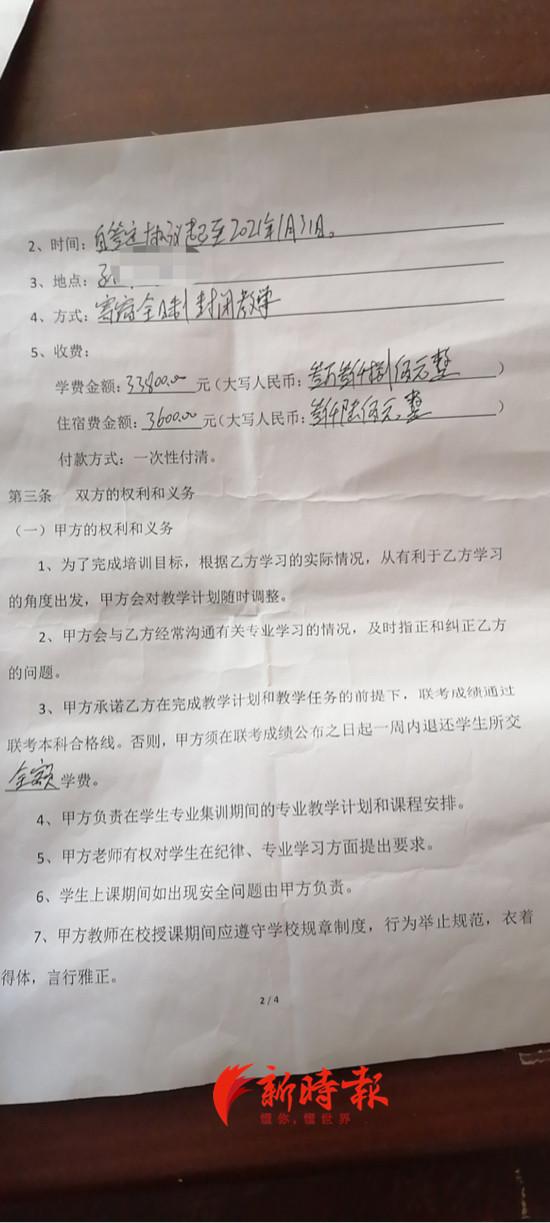 2、时间：自签定协议起至2021年1月31日。
3、地点：
4、方式：寄宿全日制封闭教学
5、收费：
学费金额：33800.00 元（大写人民币：叁万叁仟捌佰元整）
住宿费金额：3600.00 元（大写人民币：叁仟陆佰元整）
付款方式：一次性付清。
第三条 双方的权利和义务
（一）甲方的权利和义务
1、为了完成培训目标，根据乙方学习的实际情况，从有利于乙方学习
的角度出发，甲方会对教学计划随时调整。
2、甲方会与乙方经常沟通有关专业学习的情况，及时指正和纠正乙方
的问题。
3、甲方承诺乙方在完成教学计划和教学任务的前提下，联考成绩通过
联考本科合格线。否则，甲方须在联考成绩公布之日起一周内退还学生所交
全额学费。
4、甲方负责在学生专业集训期间的专业教学计划和课程安排。
5、甲方老师有权对学生在纪律、专业学习方面提出要求。
6、学生上课期间如出现安全问题由甲方负责。
7、甲方教师在校授课期间应遵守学校规章制度，行为举止规范，衣着
得体，言行雅正。
2 / 4
新時報
懂你，懂世界